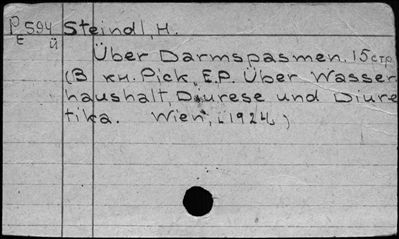 P594 Steindl, H.
E ü
Über Darmspasmen. 15 стр.
(В кн. Pick, E.P. Über Wasser-
haushalt, Diurese und Diure-
tika. Wien, [1924,)